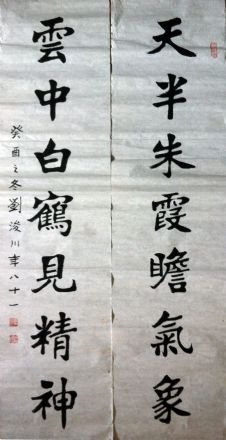 天半朱霞瞻氣象
雲中白鶴見精神
癸酉之冬劉浚川年八十一